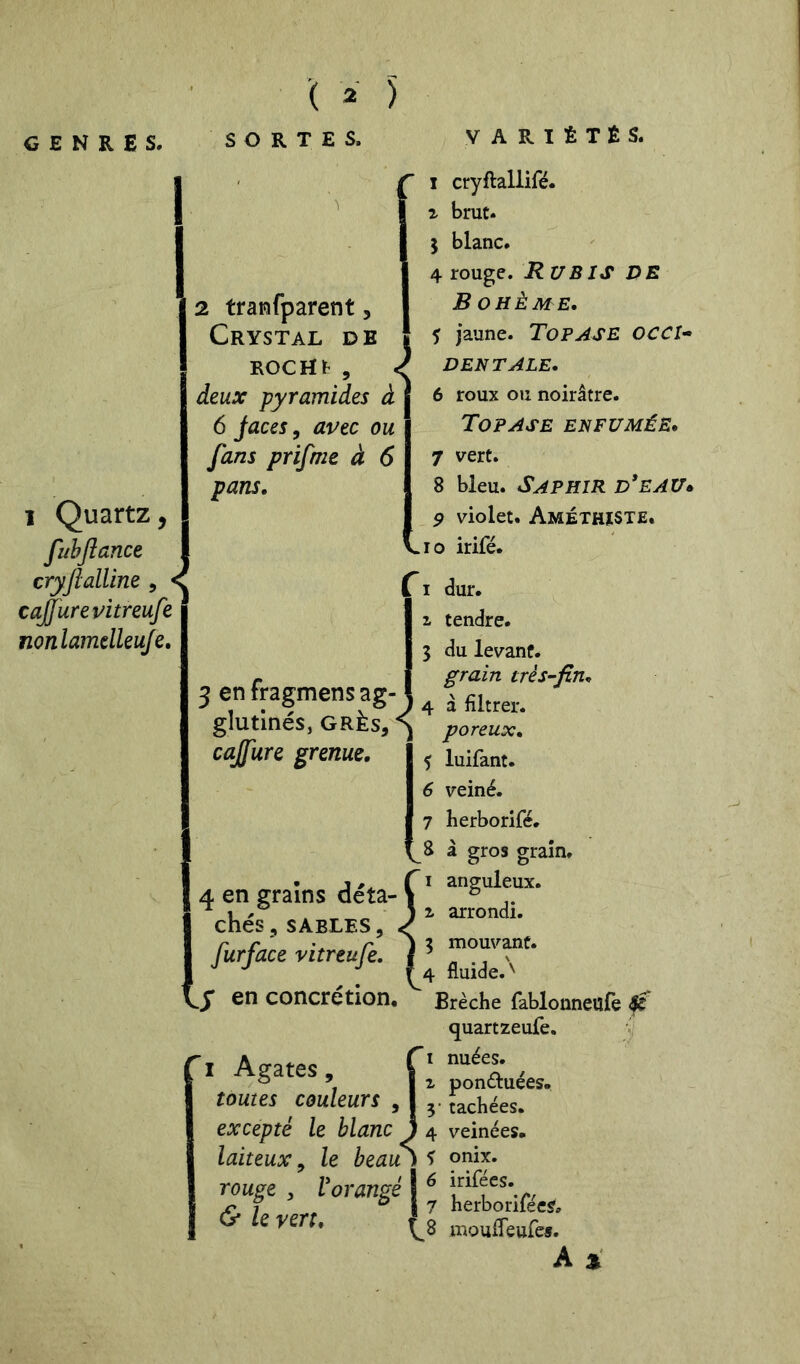 ( 2 )
GENRES. SORTES. VARIÉTÉS.
1 Quartz,
ſubſtance
cryſtalline,
caſſure vitreuſe
non lamelleuſe.
2 tranſparent,
CRYSTAL DE
ROCHE,
deux pyramides à
6 faces, avec ou
ſans priſme à 6
pans.
1 cryſtalliſé.
2 brut.
3 blanc.
4 rouge. RUBIS DE
BOHÈME.
5 jaune. TOPASE OCCI-
DENTALE.
6 roux ou noirâtre.
TOPASE ENFUMÉE.
7 vert.
8 bleu. SAPHIR D'EAU.
9 violet. AMÉTHISTE.
10 iriſé.
3 en fragmens ag-
glutinés, GRÈS,
caſſure grenue.
1 dur.
2 tendre.
3 du levant.
grain très-fin.
4 à filtrer.
poreux.
5 luiſant.
6 veiné.
7 herboriſé.
8 à gros grain.
4 en grains déta-
chés, SABLES,
ſurface vitreuſe.
1 anguleux.
2 arrondi.
3 mouvant.
4 fluide.
5 en concrétion.
Brèche ſablonneuſe &
quartzeuſe.
1 Agates,
toutes couleurs,
excepté le blanc
laiteux, le beau
rouge, l'orangé
& le vert.
1 nuées.
2 ponctuées.
3 tachées.
4 veinées.
5 onix.
6 iriſées.
7 herboriſées.
8 mouſſeuſes.
A 2